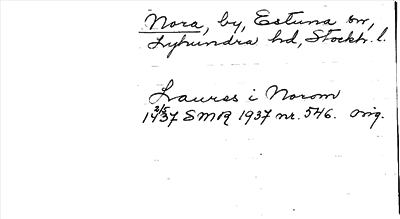 Nora, by, Estuna sn,
Lyhundra hd, Stockh. l.
Laurss i Norom
3/5
1437 SMR 1937 nr. 546. orig.